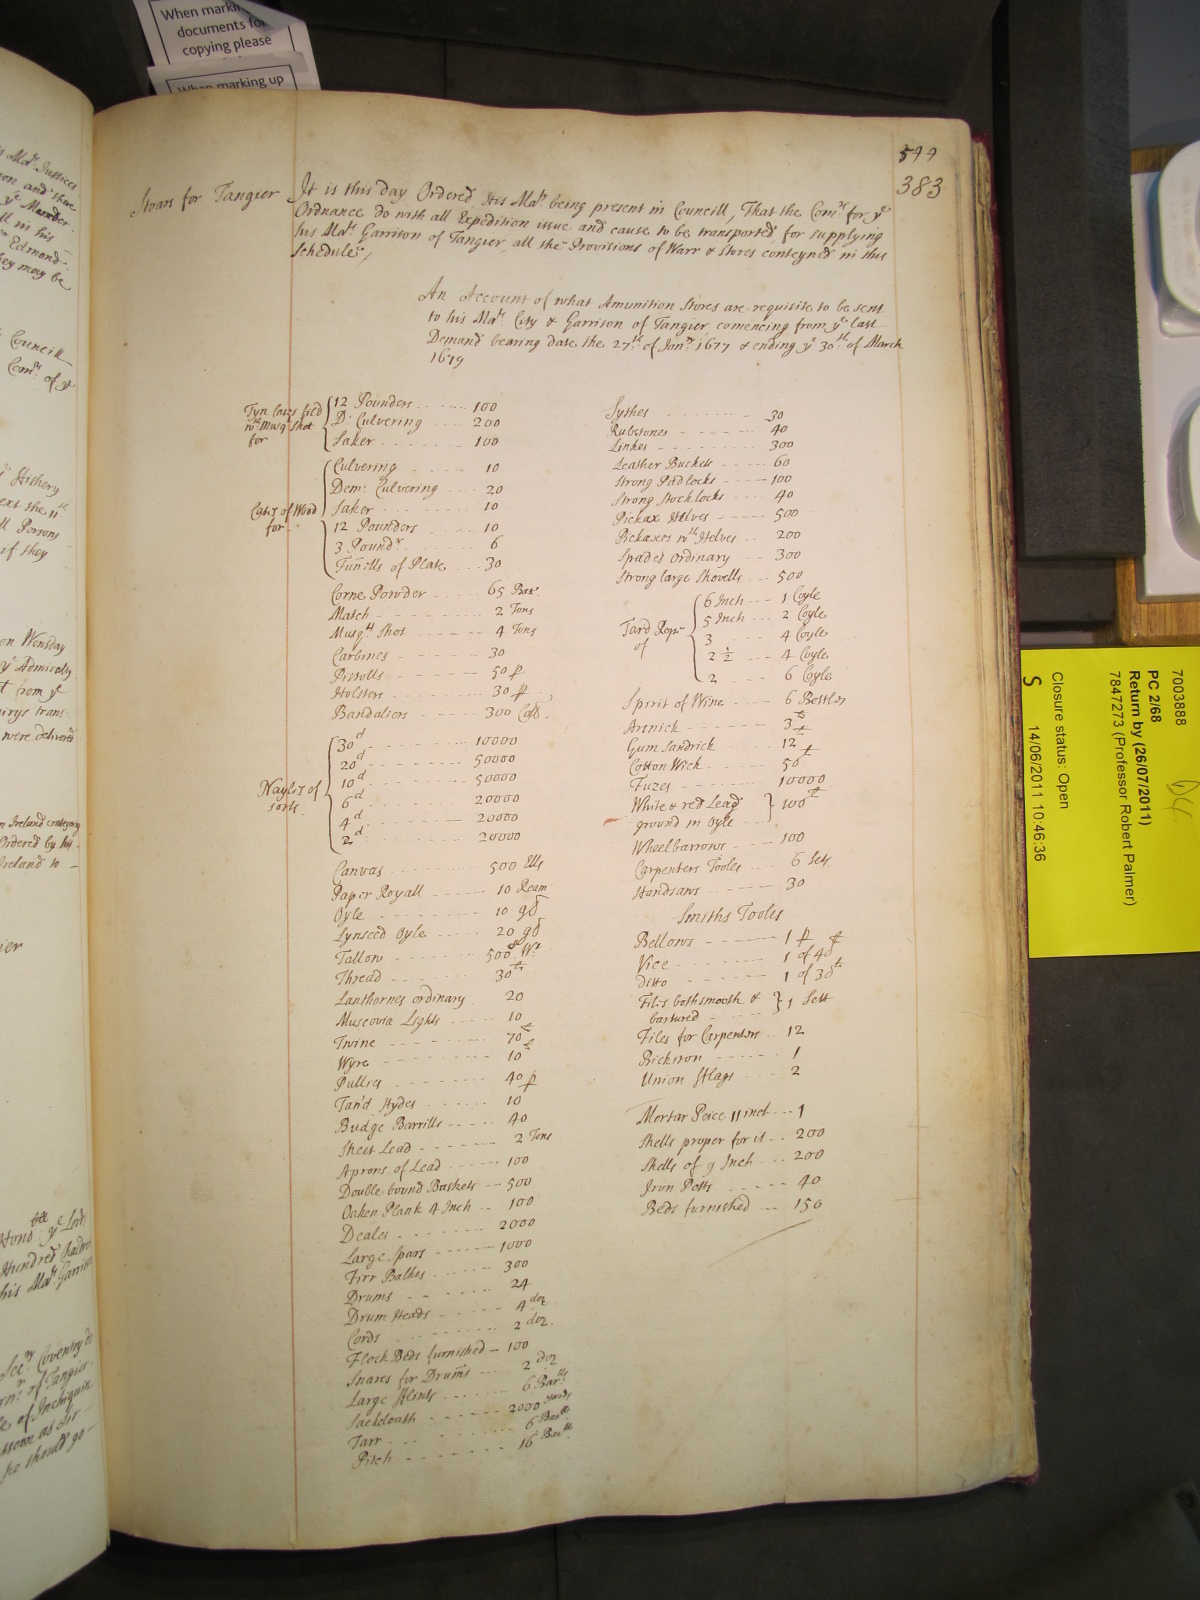 When marking
documents for
copying please
When marking up
544
383
Stoars for Tangier
It is this day Ordered, His Matie being present in Councill, That the Comrs for ye
Ordnance do with all Expedition issue and cause to be transported for supplying
his Mats Garrison of Tangier, all the Provisions of Warr & Stores conteyned in this
Schedule,
An Account of what Amunition Stores are requisite to be sent
to his Mats City & Garrison of Tangier comencing from ye last
Demand bearing date the 27th of Janry 1677 & ending ye 30th of March
1679
Tyn Cases fild
wth Musqt shot
for
12 Pounders 100
D. Culvering 200
Saker 100
Cases of Wood
for
Culvering 10
Dem: Culvering 20
Saker 10
12 Pounders 10
3 Poundr 6
Funells of Plate 30
Corne Powder 65 Bar.
Match 2 Tons
Musqtt Shot 4 Tons
Carbines 30
Pistolls 50 p
Holsters 30 p
Bandaliers 300 Coll.
Nayles of
sorts
30d 10000
20d 50000
10d 50000
6d 20000
4d 20000
2d 20000
Canvas 500 Ells
Paper Royall 10 Ream
Oyle 10 gall
Lynseed Oyle 20 gall
Tallow 500 Wt
Thread 30 ℔
Lanthornes ordinary 20
Muscovia Lights 10
Twine 70 ℔
Wyre 10 ℔
Pullies 40 p
Tan'd Hydes 10
Budge Barrills 40
Sheet Lead 2 Tons
Aprons of Lead 100
Double bound Baskets 500
Oaken Plank 4 Inch 100
Deales 2000
Large Spars 1000
Firr Balkes 300
Drums 24
Drum Heads 4 doz
Cords 2 doz.
Flock Beds furnished 100
Snares for Drums 2 doz
Large Flints 6 Barlls
Sackcloath 2000 yards
Tarr 6 Barlls
Pitch 16 Barlls
Sythes 30
Rubstones 40
Linkes 300
Leather Buckets 60
Strong Padlocks 100
Strong Stocklocks 40
Pickax Helves 500
Pickaxes wth Helves 200
Spades Ordinary 300
Strong large Shovells 500
Tard Rope
of
6 Inch 1 Coyle
5 Inch 2 Coyle
3 4 Coyle
2 1/2 4 Coyle
2 6 Coyle
Spirit of Wine 6 Bottles
Arsnick 3 ℔
Gum Sandrick 12 ℔
Cotton Wick 50 ℔
Fuzes 10000
White & red Lead
ground in Oyle 100 ℔
Wheelbarrows 100
Carpenters Tooles 6 Sets
Handsaws 30
Smiths Tooles
Bellows 1 p
Vice 1 of 40 ℔
Ditto 1 of 30 ℔
Files both smooth &
bartured 1 Sett
Files for Carpenters 12
Bickiron 1
Union Flags 2
Mortar Peice 11 inch 1
Shells proper for it 200
Shells of 9 Inch 200
Iron Potts 40
Beds furnished 150
7003888
PC 2/68
Return by (26/07/2011)
7847273 (Professor Robert Palmer)
Closure status: Open
S 14/06/2011 10:46:36
D4
s Mats Justices
on Wensday
ye Admiralty
t from ye
were delivered
Ordered by his
Ireland to
Hundred
his Mats Garrison
Secry Coventry
of Tangier
of Inchiquin
soon as
he should go